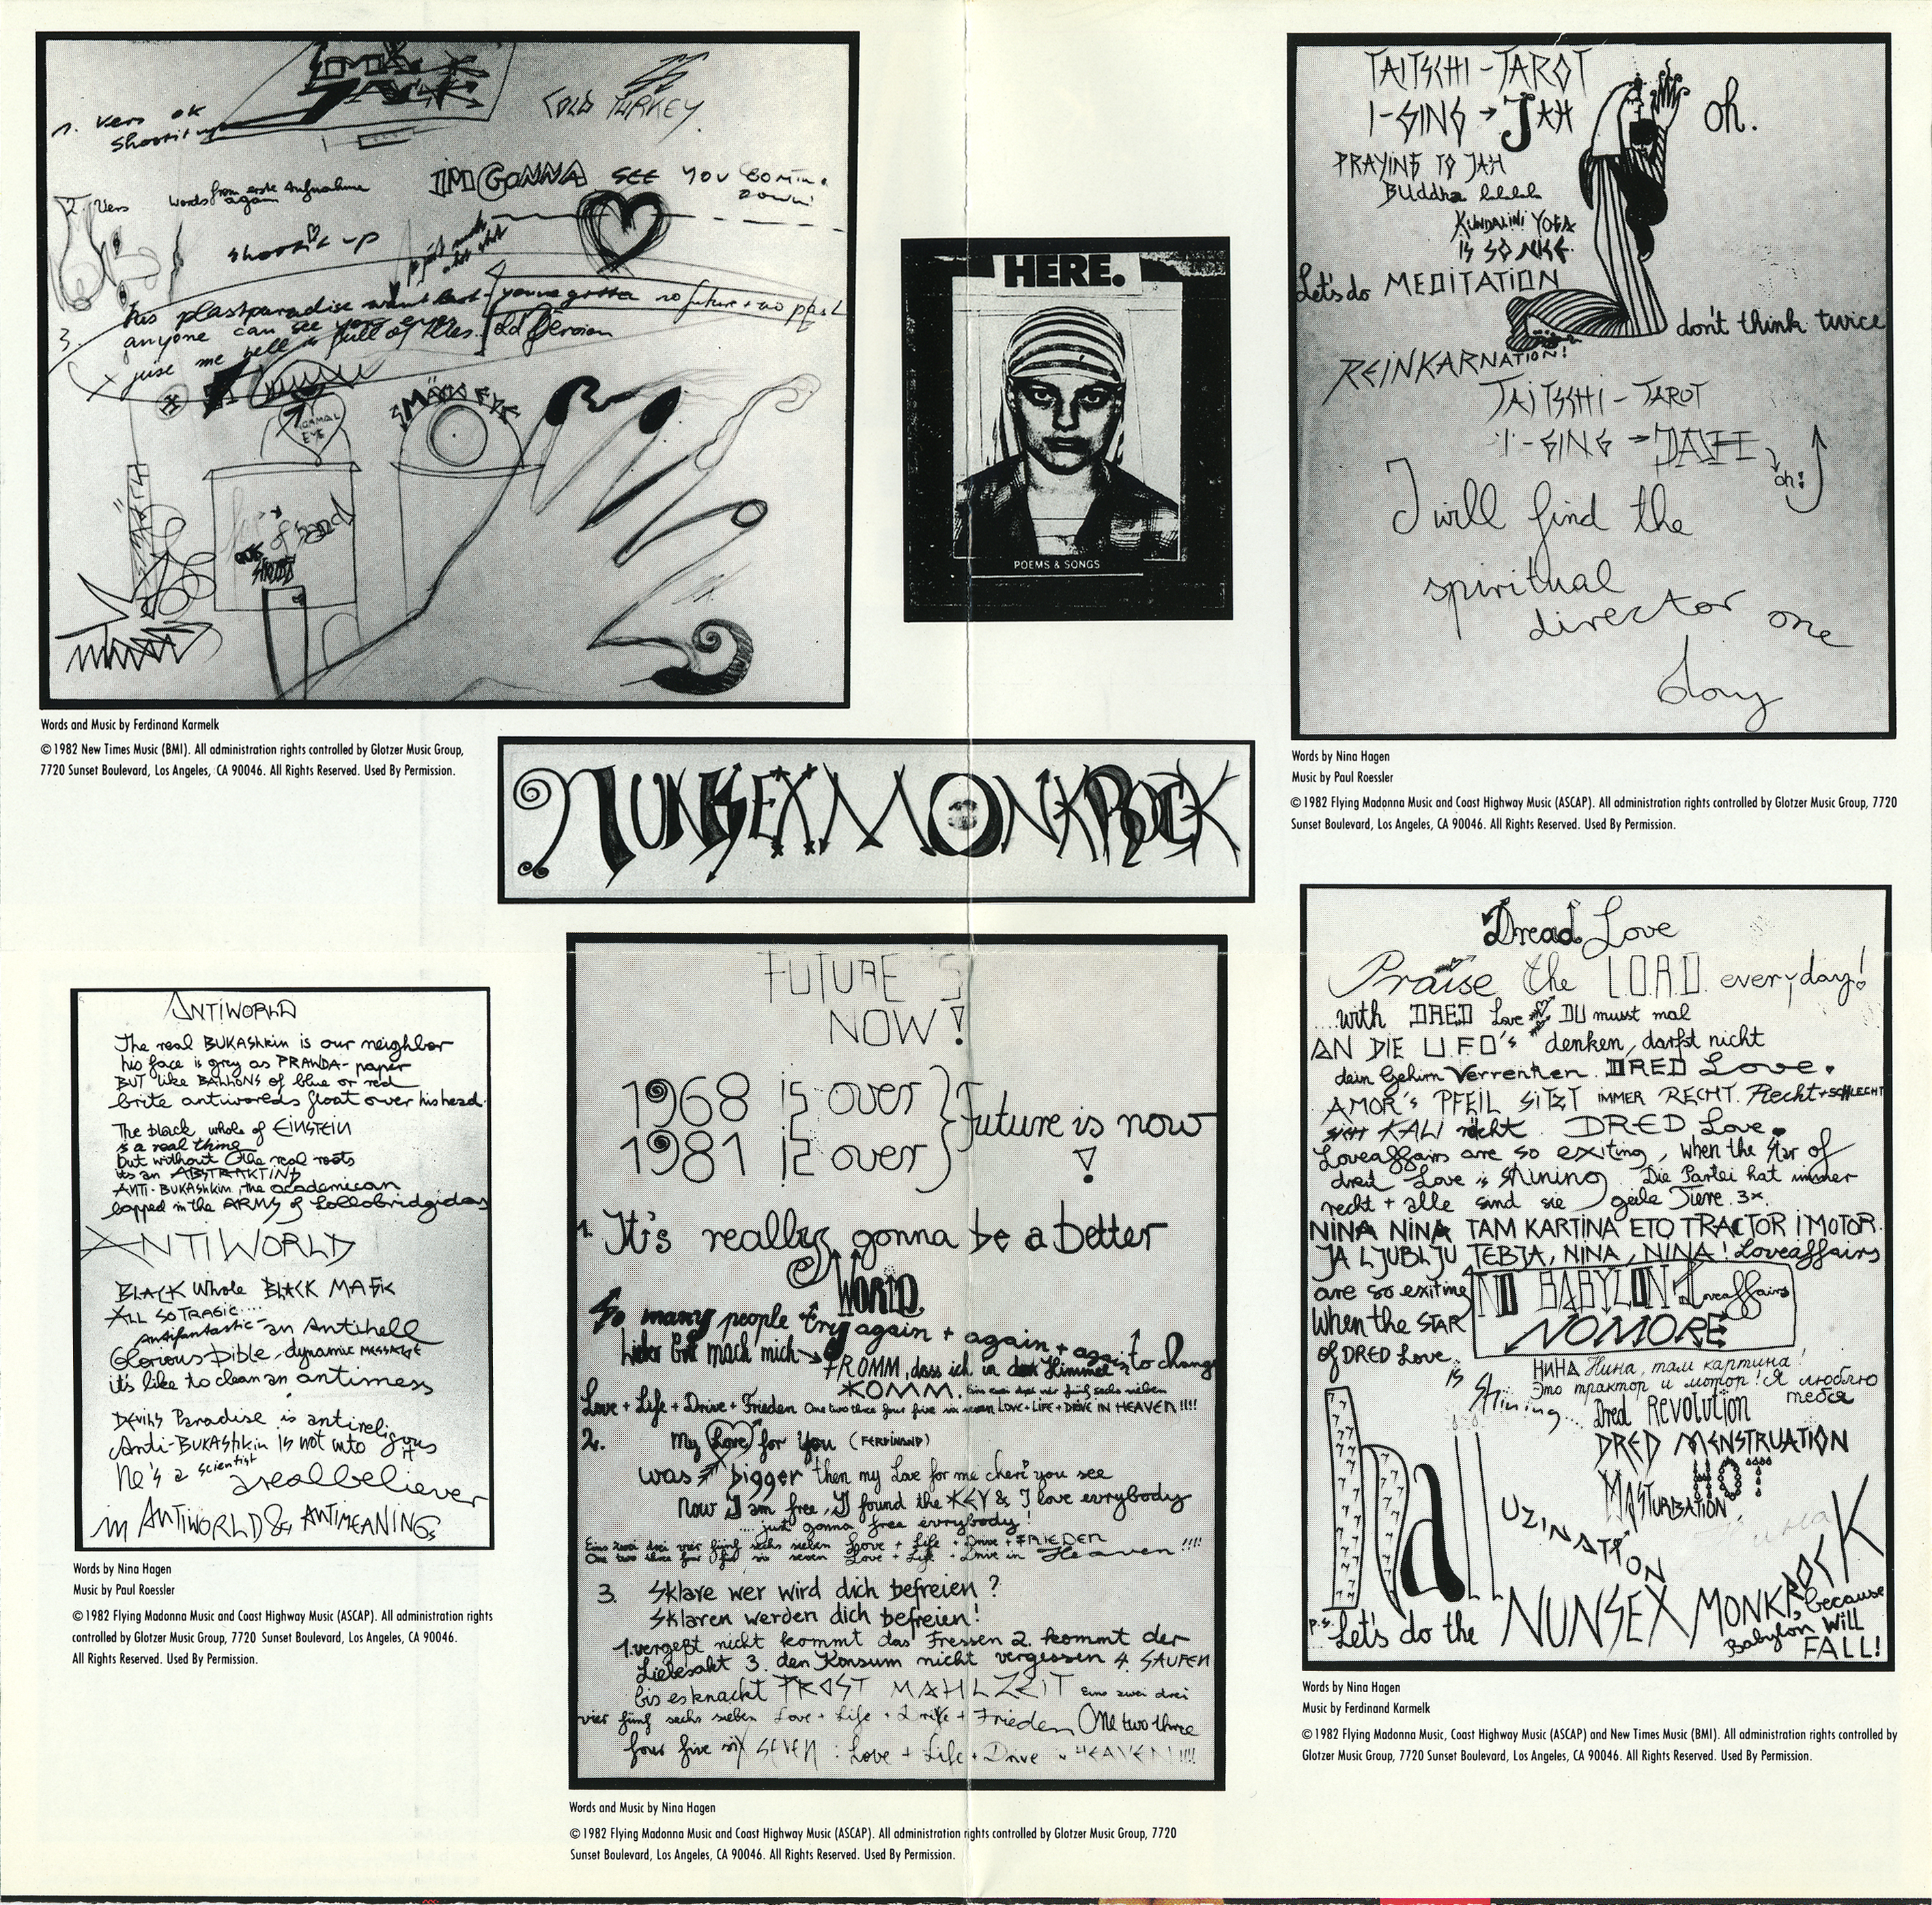 SMACK
JACK
COLD TURKEY
1. Vers ok
shoot it up
2. Vers words from erste Aufnahme
again
IM GONNA SEE YOU COMING
DOWN!
shoot it up
3. his plastparadise wont last - youve gotta no future + no past
anyone can see your eyes
juise me tell full of flies. old Version
NORMAL
EYE
SMACK EYE
Words and Music by Ferdinand Karmelk
©1982 New Times Music (BMI). All administration rights controlled by Glotzer Music Group,
7720 Sunset Boulevard, Los Angeles, CA 90046. All Rights Reserved. Used By Permission.
HERE.
POEMS & SONGS
TAITSCHI - TAROT
I-GING → JAH oh.
PRAYING TO JAH
Buddha lalalala
KUNDALINI YOGA
IS SO NICE
Let's do MEDITATION
don't think twice
REINKARNATION!
TAITSCHI - TAROT
I-GING → JAH
oh!
I will find the
spiritual
director one
day
Words by Nina Hagen
Music by Paul Roessler
©1982 Flying Madonna Music and Coast Highway Music (ASCAP). All administration rights controlled by Glotzer Music Group, 7720
Sunset Boulevard, Los Angeles, CA 90046. All Rights Reserved. Used By Permission.
NUNSEXMONKROCK
ANTIWORLD
The real BUKASHkin is our neighbor
his face is grey as PRAWDA-paper
BUT like BALLOONS of blue or red
brite antiworlds float over his head.
The black whole of EINSTEIN
is a real thing
but without the real roots
its an ABSTRAKTING
ANTI-BUKASHkin, the academican
lapped in the ARMS of Lollobridgidas
ANTIWORLD
BLACK Whole BLACK MAFIK
ALL SO TRAGIC....
Antifantastic - an Antihell
Glorious Bible, dynamic MESSAGE
it's like to clean an antimess
DEVIL'S Paradise is antireligous
Anti-BUKAShkin is not into it
he's a scientist
a real believer
in ANTIWORLD & ANTIMEANINGs
Words by Nina Hagen
Music by Paul Roessler
©1982 Flying Madonna Music and Coast Highway Music (ASCAP). All administration rights
controlled by Glotzer Music Group, 7720 Sunset Boulevard, Los Angeles, CA 90046.
All Rights Reserved. Used By Permission.
FUTURE IS
NOW!
1968 is over
1981 is over
Future is now
!
1. It's really gonna be a better
WORLD
So many people try again + again + again to change
Lieber Gott mach mich → FROMM, dass ich in den Himmel
KOMM. Eins zwei drei vier fünf sechs sieben
Love + Life + Drive + Frieden One two three four five six seven LOVE + LIFE + DRIVE IN HEAVEN!!!!
2. My Love for You (FERDINAND)
was bigger then my Love for me cheri you see
Now I am free, I found the KEY & I love evrybody
....just gonna free evrybody!
Eins zwei drei vier fünf sechs sieben Love + Life + Drive + FRIEDEN
One two three four five six seven Love + Life + Drive in Heaven!!!!
3. Sklave wer wird dich befreien?
Sklaren werden dich befreien!
1. vergeßt nicht kommt das Fressen 2. kommt der
Liebesakt 3. den Konsum nicht vergessen 4. SAUFEN
bis es knackt PROST MAHLZEIT Eins zwei drei
vier fünf sechs sieben Love + Life + Drife + Frieden One two three
four five six SEVEN : Love + Life + Drive in HEAVEN!!!!
Words and Music by Nina Hagen
©1982 Flying Madonna Music and Coast Highway Music (ASCAP). All administration rights controlled by Glotzer Music Group, 7720
Sunset Boulevard, Los Angeles, CA 90046. All Rights Reserved. Used By Permission.
Dread Love
Praise the L.O.R.D. everyday!
....with DRED Love DU musst mal
AN DIE U.F.O's denken, darfst nicht
dein Gehirn Verrenken. DRED Love.
AMOR's PFEIL SITZT IMMER RECHT. Recht + SCHLECHT
KALI rächt. DRED Love.
Loveaffairs are so exiting, when the Star of
dred Love is shining. Die Partei hat immer
recht + alle sind sie geile Tiere. 3x.
NINA NINA TAM KARTINA ETO TRACTOR I MOTOR.
JA LJUBLJU TEBJA, NINA, NINA! Loveaffairs
are so exiting
when the STAR
of DRED Love
is
Shining...
NO BABYLON Loveaffairs
NOMORE
НИНА Нина, там картина!
Это трактор и мотор! Я люблю
тебя
Dred REVOLUTION
DRED MENSTRUATION
HOT
MASTURBATION
hall
UZINATION
Нина
p.s. Let's do the NUNSEX MONKROCK, because
Babylon Will
FALL!
Words by Nina Hagen
Music by Ferdinand Karmelk
©1982 Flying Madonna Music, Coast Highway Music (ASCAP) and New Times Music (BMI). All administration rights controlled by
Glotzer Music Group, 7720 Sunset Boulevard, Los Angeles, CA 90046. All Rights Reserved. Used By Permission.